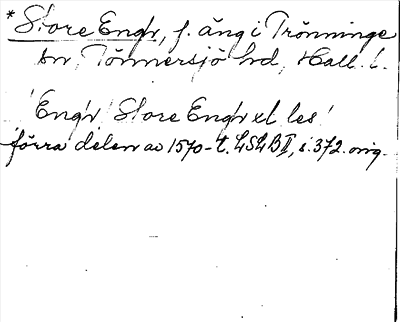 * Store Engr, f. äng i Trönninge
sn, Tönnersjö hd, Hall. l.
'Engr' 'Store Engr el les'
förra delen av 1570-t. LSLB II, s. 372. orig.